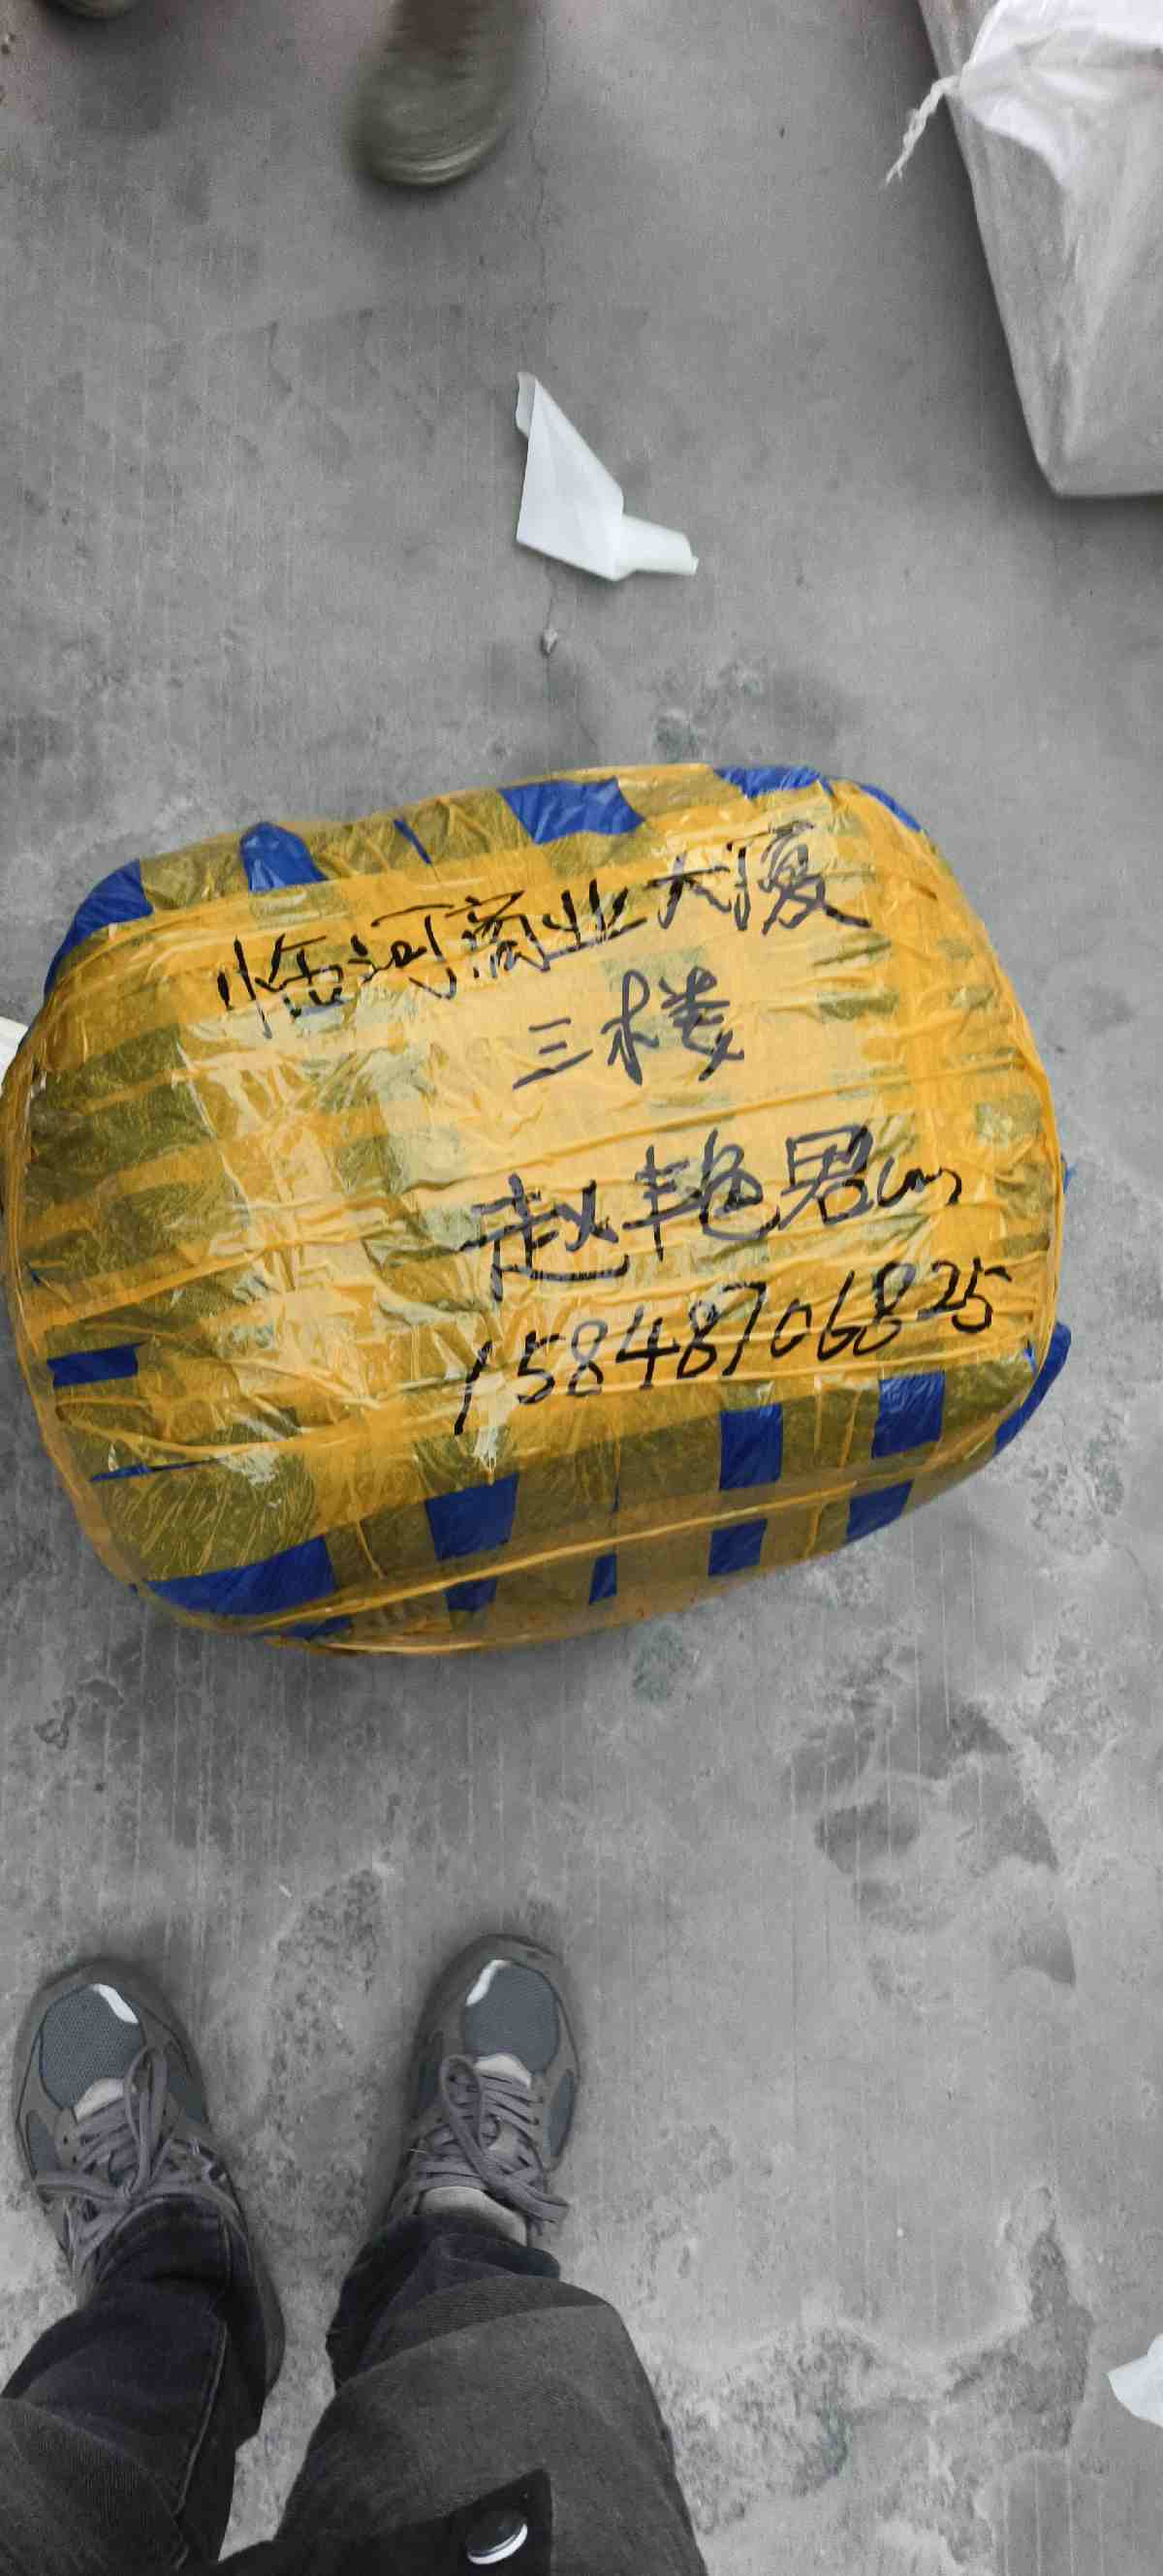 临河商业大厦
三楼
赵艳君
15848706825